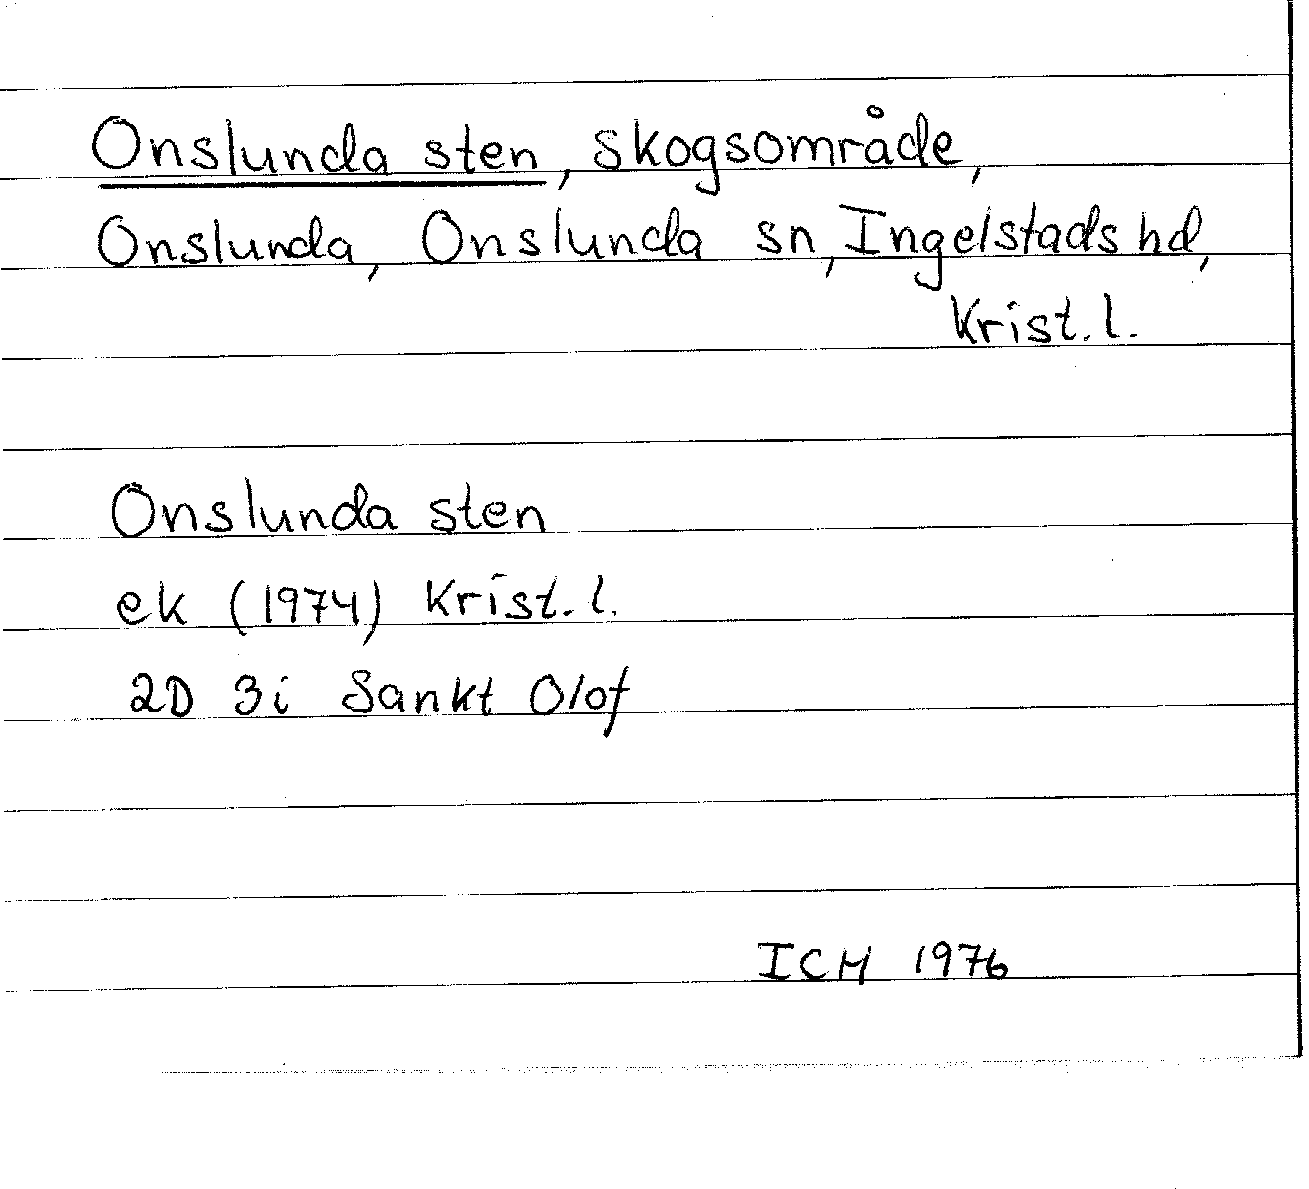 Onslunda sten, skogsområde,
Onslunda, Onslunda sn, Ingelstads hd,
Krist. l.
Onslunda sten
ek (1974) Krist. l.
2D 3i Sankt Olof
ICM 1976